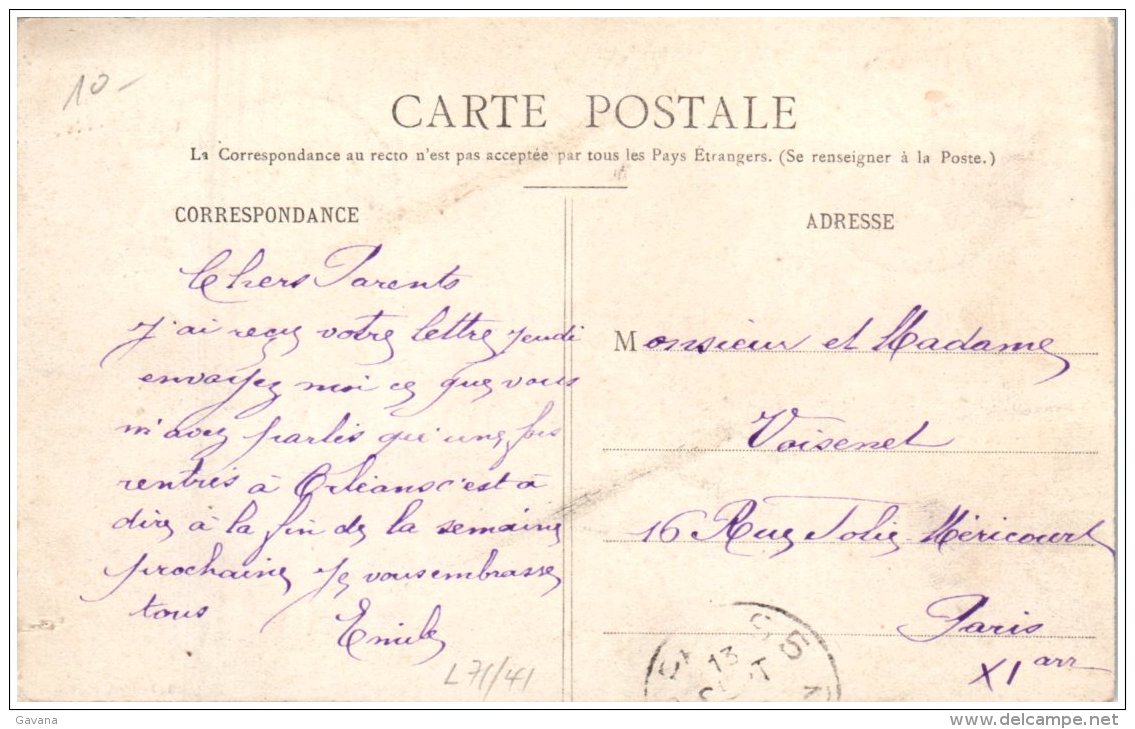 10-
CARTE POSTALE
La Correspondance au recto n'est pas acceptée par tous les Pays Étrangers. (Se renseigner à la Poste.)
CORRESPONDANCE
Chers Parents
J'ai reçu votre lettre jeudi
envoyez moi ce que vous
m'avez parlés qu'une fois
rentrés à Orléans c'est à
dire à la fin de la semaine
prochaine Je vous embrasse
tous
Emile
L71/41
ADRESSE
Monsieur et Madame
Voisenet
16 Rue Folie-Méricourt
Paris
XI arr
13
Gavana
www.delcampe.net